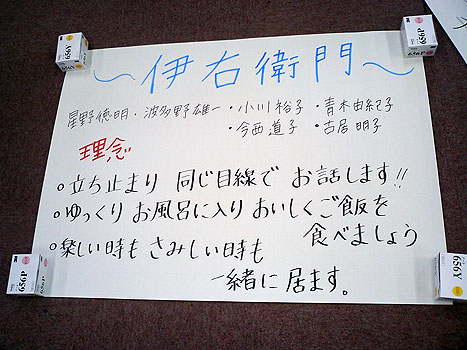 ～伊右衛門～
星野徳明・波多野雄一・小川裕子・青木由紀子
・今西道子・古居明子
理念
○立ち止まり 同じ目線で お話します!!
○ゆっくり お風呂に入り おいしくご飯を
食べましょう
○楽しい時も さみしい時も
一緒に 居ます。
656Y